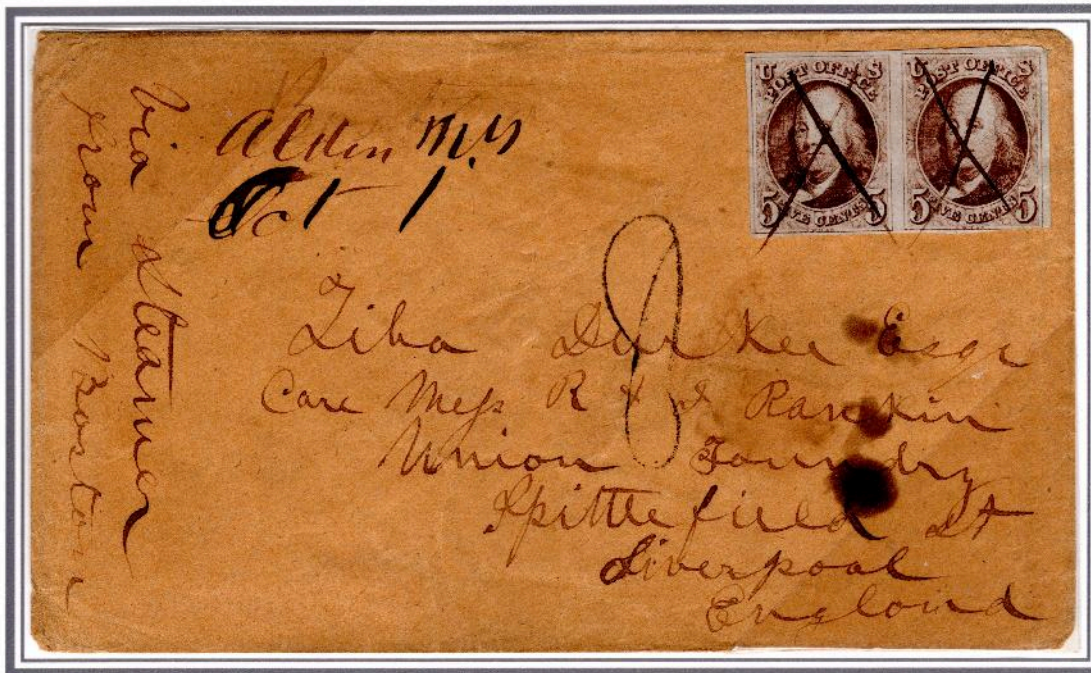 via steamer
from Boston
Alden N.Y
Oct 1
U S
POST OFFICE
5 5
FIVE CENTS
U S
POST OFFICE
5 5
FIVE CENTS
8
Ziba Durkee Esqr
Care Mess R & J Rankin
Union Foundry
Spittlefield St
Liverpool
England